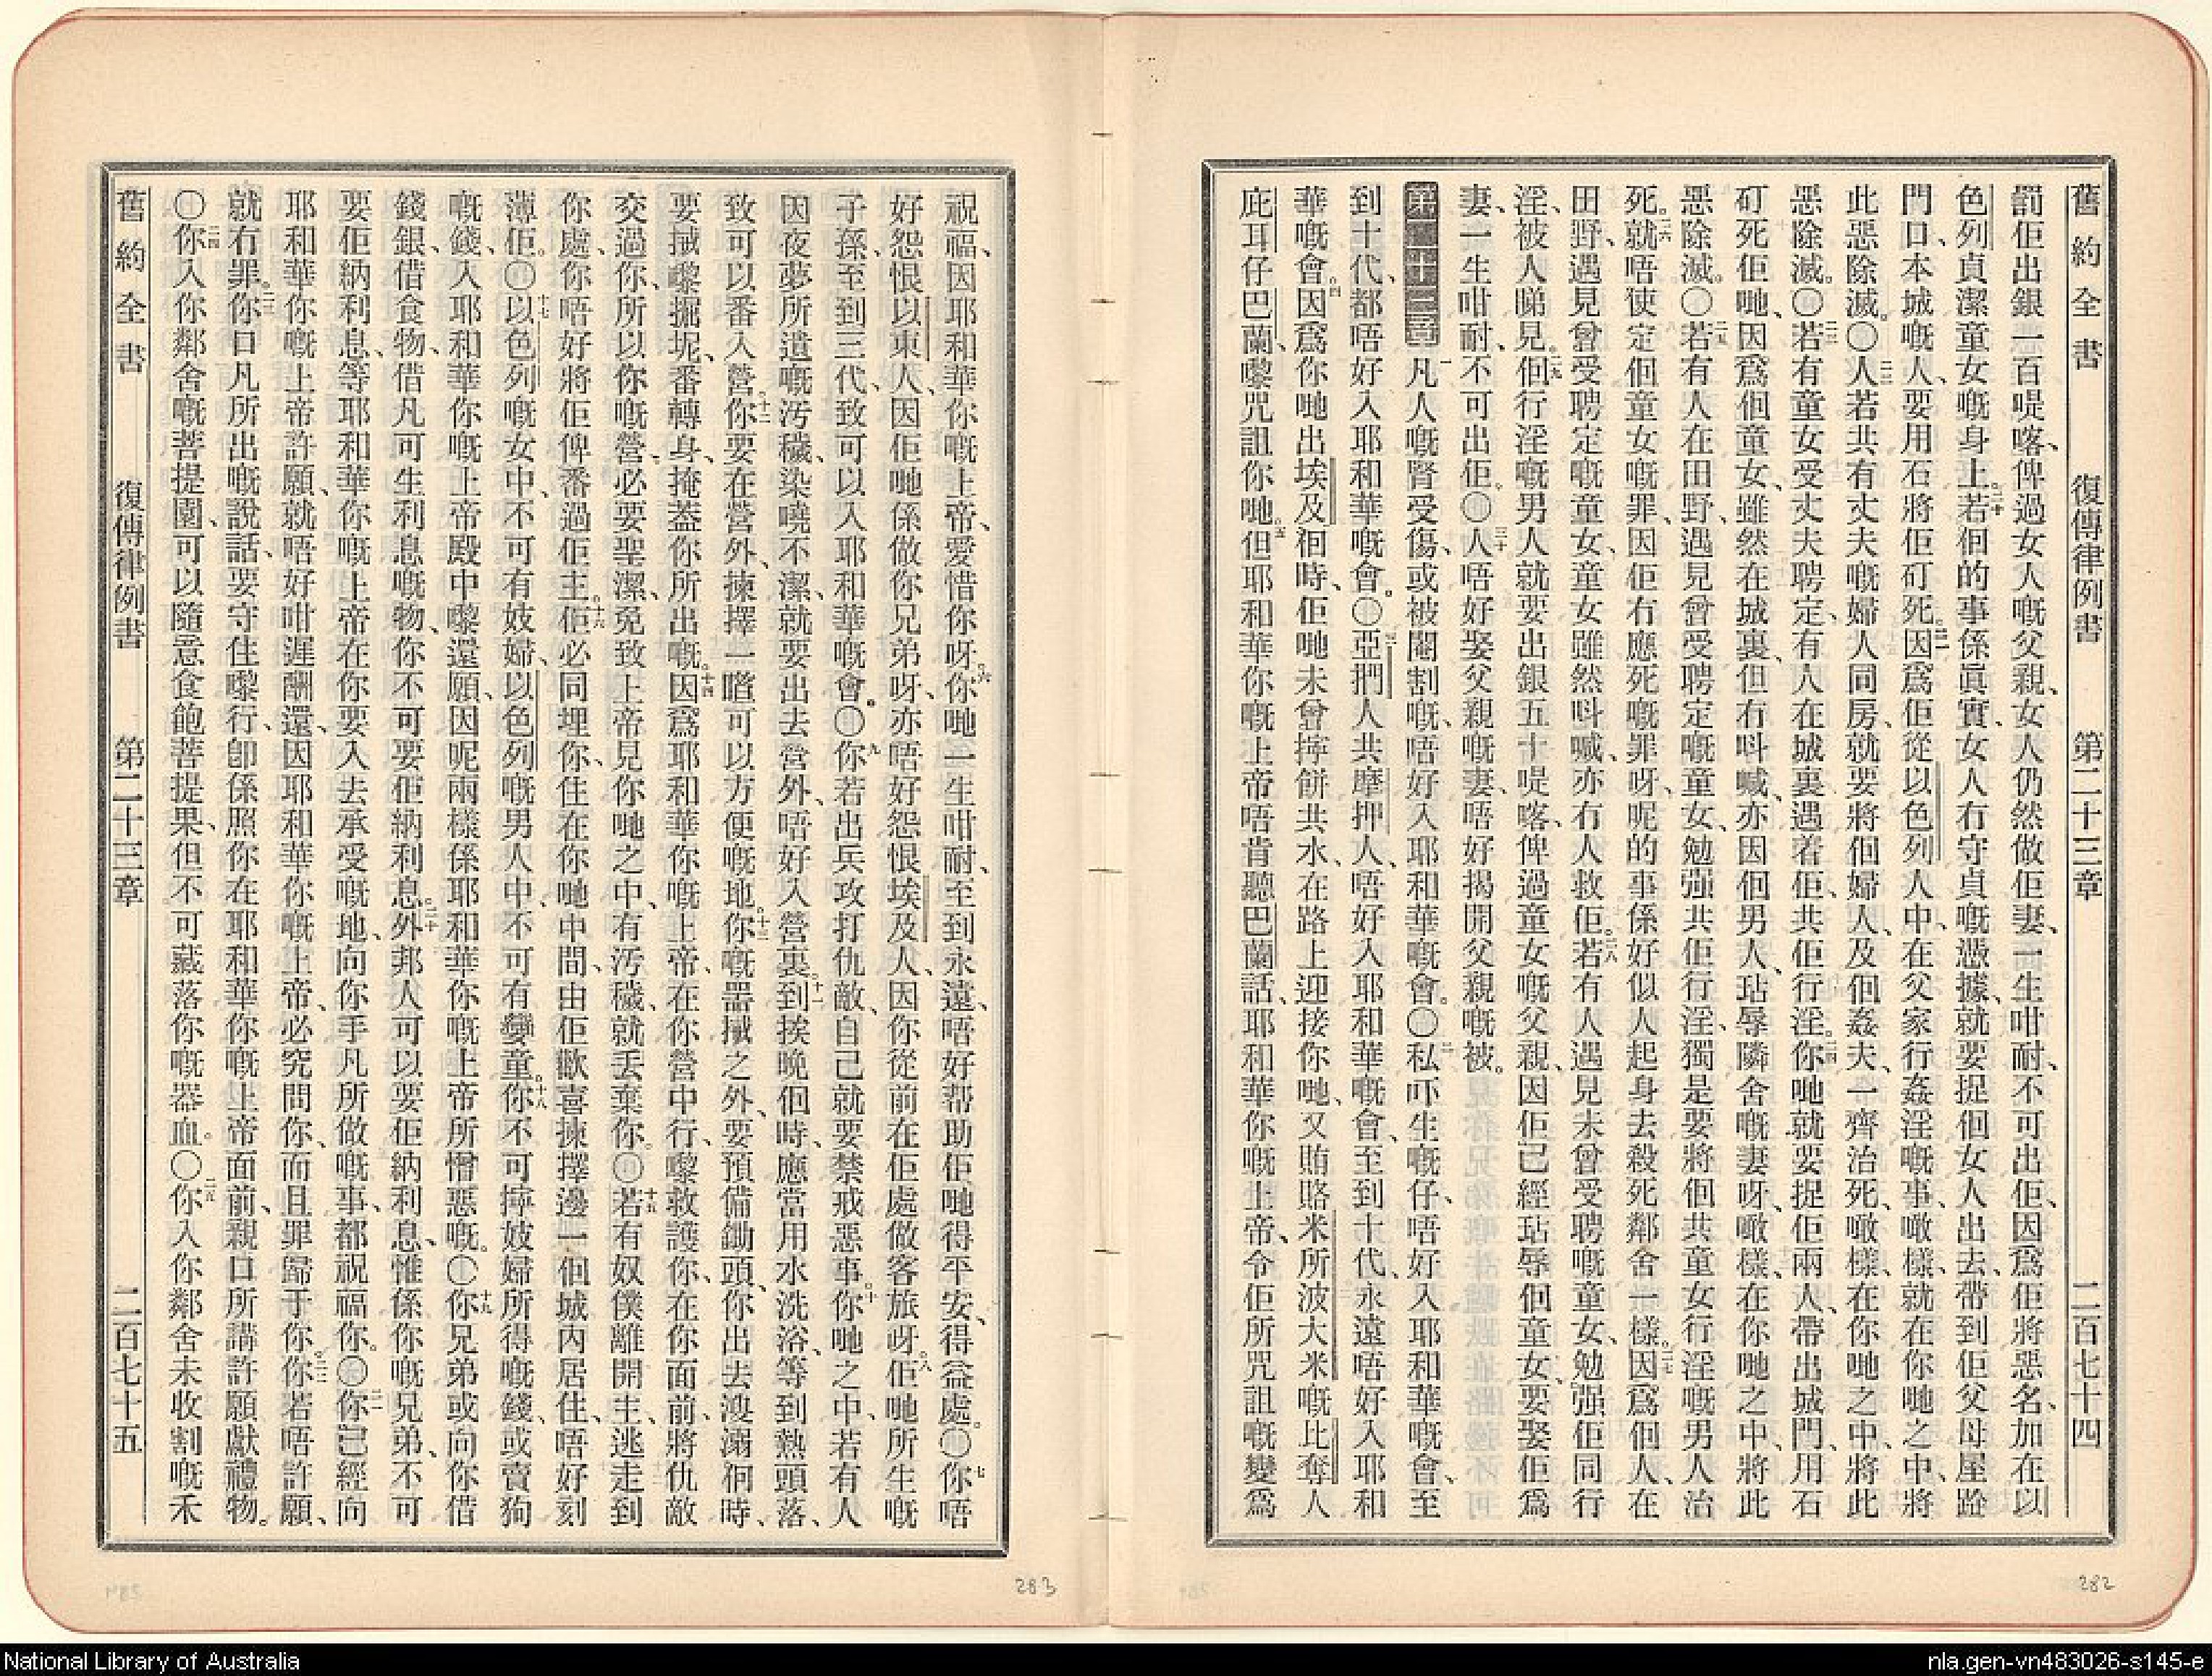 舊約全書　復傳律例書　第二十三章　二百七十四
罰佢出銀一百㖷喀、俾過女人嘅父親、女人仍然做佢妻、一生咁耐、不可出佢、因爲佢將惡名、加在以
色列貞潔童女嘅身上。二十若個的事係眞實、女人冇守貞嘅憑據、二十一就要捉個女人出去、帶到佢父母屋
門口、本城嘅人、要用石將佢矴死。因爲佢從以色列人中、在父家行姦淫嘅事、噉樣、就在你哋之中、將
此惡除滅。〇二二人若共有丈夫嘅婦人同房、就要將個婦人、及個姦夫、一齊治死、噉樣、在你哋之中、將此
惡除滅。〇二三若有童女受丈夫聘定、有人在城裏遇着佢、共佢行淫。二四你哋就要捉佢兩人、帶出城門、用石
矴死佢哋、因爲個童女、雖然在城裏、但冇呌喊、亦因個男人、玷辱隣舍嘅妻呀、噉樣、在你哋之中、將此
惡除滅。〇二五若有人在田野、遇見曾受聘定嘅童女、勉强共佢行淫、獨是要將個共童女行淫嘅男人治
死。二六就唔使定個童女嘅罪、因佢冇應死嘅罪呀、呢的事係好似人起身去殺死鄰舍一樣。二七因爲個人、在
田野、遇見曾受聘定嘅童女、童女雖然呌喊、亦冇人救佢。二八若有人遇見未曾受聘嘅童女、勉强佢同行
淫、被人睇見。二九個行淫嘅男人就要出銀五十㖷喀、俾過童女嘅父親、因佢已經玷辱個童女、要娶佢爲
妻、一生咁耐、不可出佢。〇三十人唔好娶父親嘅妻、唔好揭開父親嘅被。
第二十三章　一凡人嘅腎受傷、或被閹割嘅、唔好入耶和華嘅會。〇二私吓生嘅仔、唔好入耶和華嘅會、至
到十代、都唔好入耶和華嘅會。〇三亞捫人共摩押人、唔好入耶和華嘅會、至到十代、永遠唔好入耶和
華嘅會。四因爲你哋出埃及個時、佢哋未曾擰餅共水、在路上迎接你哋、又賄賂米所波大米嘅比奪人
庇耳仔巴蘭、嚟咒詛你哋。五但耶和華你嘅上帝唔肯聽巴蘭話、耶和華你嘅上帝、令佢所咒詛嘅變爲
祝福、因耶和華你嘅上帝、愛惜你呀。六你哋一生咁耐、至到永遠、唔好帮助佢哋得平安、得益處。〇七你唔
好怨恨以東人、因佢哋係做你兄弟呀、亦唔好怨恨埃及人、因你從前在佢處做客旅呀。八佢哋所生嘅
子孫、至到三代、致可以入耶和華嘅會。〇九你若出兵攻打仇敵、自己就要禁戒惡事。十你哋之中、若有人
因夜夢所遺嘅汚穢、染嘵不潔、就要出去營外、唔好入營裏。十一到挨晚個時、應當用水洗浴、等到熱頭落、
致可以番入營。十二你要在營外、揀擇一笪可以方便嘅地。十三你嘅器椷之外、要預備鋤頭、你出去溲溺個時、
要椷嚟掘坭、番轉身、掩葢你所出嘅。十四因爲耶和華你嘅上帝、在你營中行、嚟救護你、在你面前、將仇敵
交過你、所以你嘅營、必要聖潔、免致上帝見你哋之中、有汚穢、就丢棄你。〇十五若有奴僕離開主、逃走到
你處、你唔好將佢俾番過佢主。十六佢必同埋你、住在你哋中間、由佢歡喜揀擇邊一個城內居住、唔好刻
薄佢。〇十七以色列嘅女中、不可有妓婦、以色列嘅男人中、不可有孌童。十八你不可擰妓婦所得嘅錢、或賣狗
嘅錢、入耶和華你嘅上帝殿中嚟還願、因呢兩樣係耶和華你嘅上帝所憎惡嘅。〇十九你兄弟或向你借
錢銀、借食物、借凡可生利息嘅物、你不可要佢納利息。二十外邦人可以要佢納利息、惟係你嘅兄弟、不可
要佢納利息、等耶和華你嘅上帝在你要入去承受嘅地、向你手凡所做嘅事、都祝福你。〇二一你已經向
耶和華你嘅上帝許願、就唔好咁遲酬還、因耶和華你嘅上帝、必究問你、而且罪歸于你。二二你若唔許願、
就冇罪。二三你口凡所出嘅說話、要守住嚟行、卽係照你在耶和華你嘅上帝面前、親口所講許願獻禮物。
〇二四你入你鄰舍嘅菩提園、可以隨意食飽菩提果、但不可藏落你嘅器皿。〇二五你入你鄰舍未收割嘅禾
舊約全書　復傳律例書　第二十三章　二百七十五
282
283
National Library of Australia
nla.gen-vn483026-s145-e